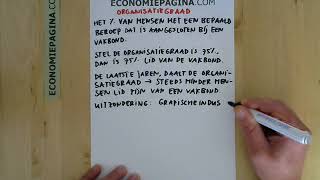 ECONOMIEPAGINA.COM
ORGANISATIEGRAAD
HET % VAN MENSEN MET EEN BEPAALD
BEROEP DAT IS AANGESLOTEN BIJ EEN
VAKBOND.
STEL DE ORGANISATIEGRAAD IS 75%.
DAN IS 75% LID VAN DE VAKBOND.
DE LAATSTE JAREN, DAALT DE ORGANI-
SATIEGRAAD → STEEDS MINDER MEN-
SEN LID ZIJN VAN EEN VAKBOND.
UITZONDERING: GRAFISCHE INDUS